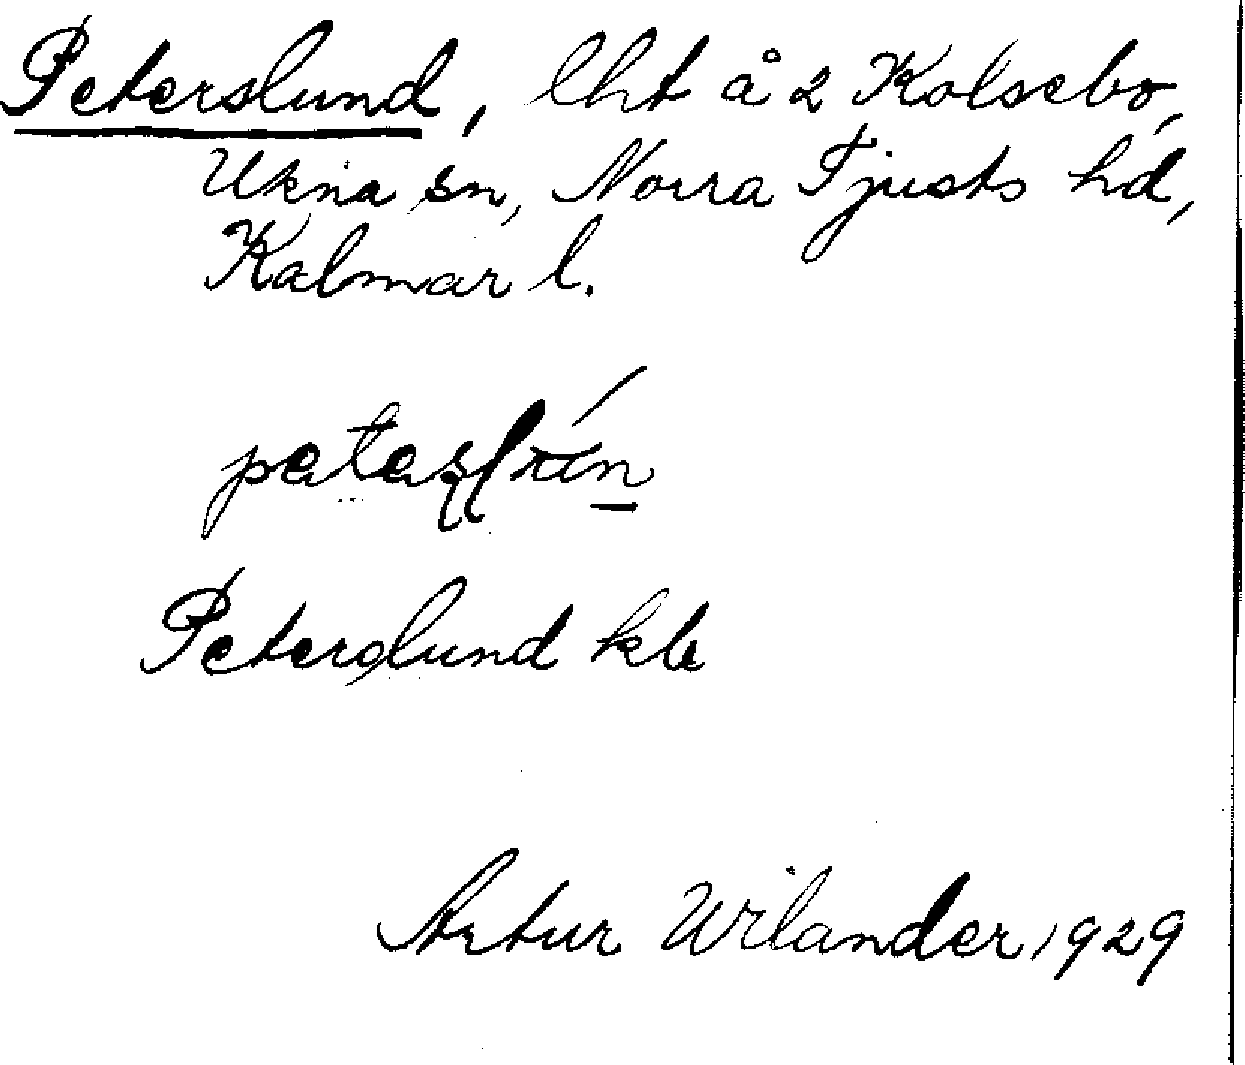 Peterslund, lht å 2 Kolsebo,
Ukna sn, Norra Tjusts hd,
Kalmar l.
Peterslund kb
Artur Wilander 1929